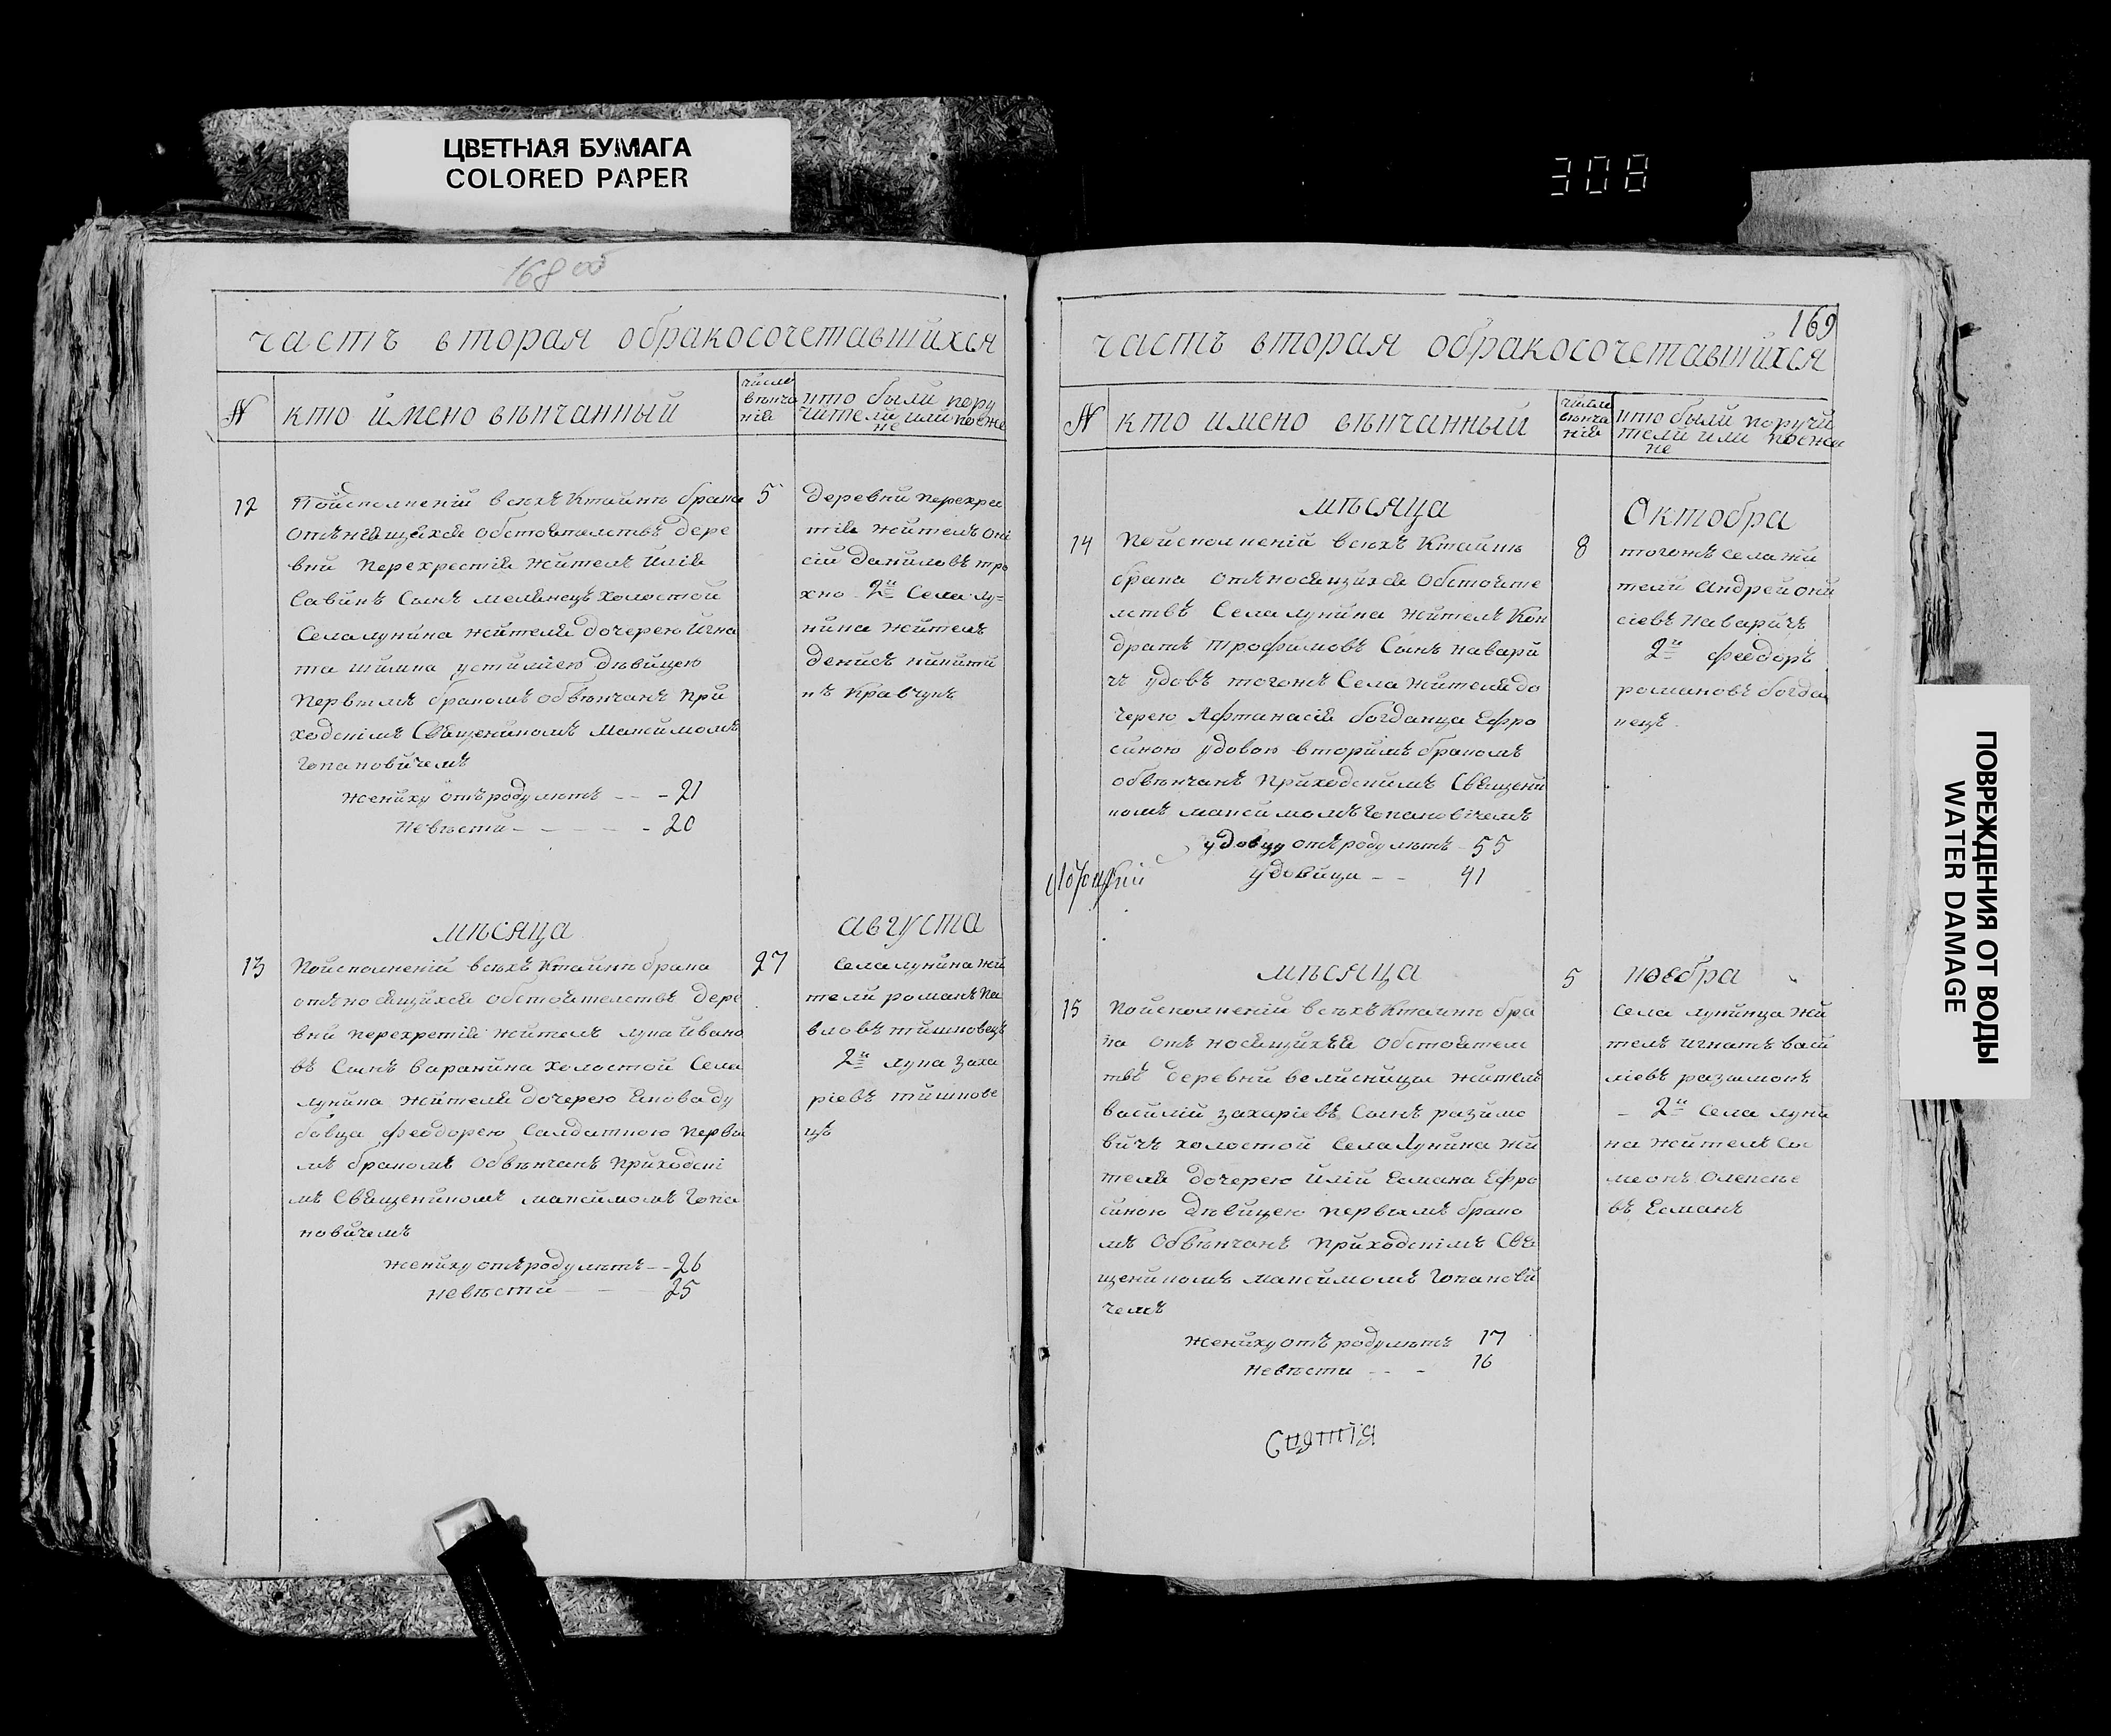 ЦВЕТНАЯ БУМАГА
COLORED PAPER
308
168 об
часть вторая обракосочетавшихся
N
кто имено вѣнчанный
число вѣнча ній
кто были пору
чители или поѣжа
не
12
Поисполненій всѣхъ Ктаинѣ брака
5
отъносящихся обстоятелствъ дере
вни Перехрестія жителъ Илія
Савинъ Сынъ мелянецъ холостой
Села лунина жителя дочерею Игна
та шимка устиміею дѣвицею
Первымъ бракомъ обвѣнчанъ При
ходскімъ Священикомъ Максимомъ
Гопановичемъ
жениху отъроду лѣтъ - - - 21
Невѣсти - - - - - 20
деревни перехрес
тія жителъ Они
сій даниловъ тро
хно 2й Села лу=
нина жителъ
денисъ никити
нъ Кравчукъ
мѣсяца
августа
13
Поисполненій всѣхъ Ктаинѣ брака
27
отъносящихся обстоятелствъ дере
вни перехретія жителъ лука Ивано
въ Сынъ варанина холостой Села
лунина жителя дочерею Якова ду
бовца феодорею Солдаткою первы
мъ бракомъ Обвѣнчанъ Приходскі
мъ Священикомъ максимомъ Гопа
новичемъ
жениху отъроду лѣтъ - - 26
невѣсти - - 25
Села лунина жи
тели романъ Па
вловъ тишковецъ
2й лука Заха
ріевъ тишкове
цъ
169
часть вторая обракосочетавшихся
N
кто имено вѣнчанный
число вѣнча ній
кто были поручи
тели или поежа
не
мѣсяца
Октобра
14
Поисполненій всѣхъ Ктаинѣ
8
брака отъносящихся Обстояте
лствъ Села лунина жителъ Кон
дратъ трофимовъ Сынъ навари
чъ удовъ тогожъ Села жителя до
черею Афтанасія богданца Ефро
синою удовою вторимъ бракомъ
обвѣнчанъ Приходскимъ Священи
комъ максимомъ Гопановічемъ
удовцу отъроду лѣтъ - 55
удовици - - 41
тогожъ села жи
тели Андрей они
сіевъ Наваричъ
2й феодоръ
романовъ богда
нецъ
мѣсяца
5
ноебра
15
Поисполненій всѣхъ Ктаинѣ бра
ка отъ носящихся Обстоятел
твъ деревни велисницы жителъ
василій захаріевъ Сынъ разимо
вичъ холостой Села Лунина жи
теля дочерею Иліи Есмана Ефро
синою дѣвицею первымъ брако
мъ Обвѣнчанъ Приходскімъ Свя
щеникомъ максимомъ Гопанови
чемъ
жениху отъ роду лѣтъ 17
Невѣсти - - - 16
Села лунинца жи
телъ Игнатъ васи
ліевъ разимокъ
- 2й Села луни
на жителъ Си
меонъ Олексѣе
въ Есманъ
ПОВРЕЖДЕНИЯ ОТ ВОДЫ
WATER DAMAGE